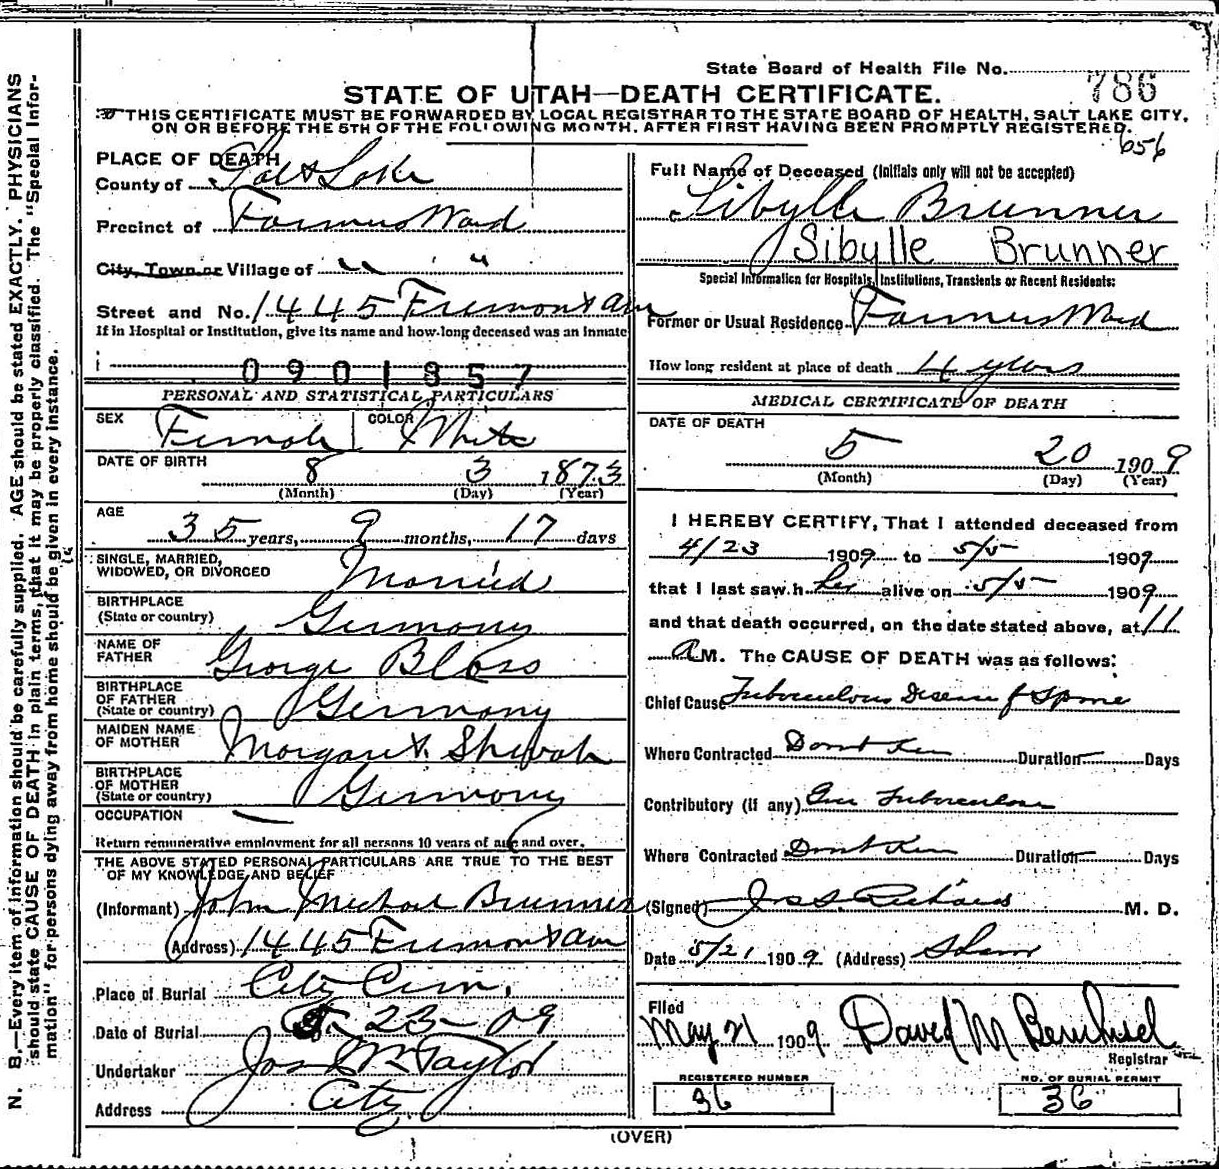 State Board of Health File No. 786
STATE OF UTAH—DEATH CERTIFICATE.
THIS CERTIFICATE MUST BE FORWARDED BY LOCAL REGISTRAR TO THE STATE BOARD OF HEALTH, SALT LAKE CITY,
ON OR BEFORE THE 5TH OF THE FOLLOWING MONTH, AFTER FIRST HAVING BEEN PROMPTLY REGISTERED.
656
N. B.—Every item of information should be carefully supplied. AGE should be stated EXACTLY. PHYSICIANS
should state CAUSE OF DEATH in plain terms, that it may be properly classified. The "Special Infor-
mation" for persons dying away from home should be given in every instance.
PLACE OF DEATH
County of Salt Lake
Precinct of Farmers Ward
City, Town or Village of " "
Street and No. 1445 Fremont Ave
If in Hospital or Institution, give its name and how long deceased was an inmate
0901357
PERSONAL AND STATISTICAL PARTICULARS
SEX Female COLOR White
DATE OF BIRTH 8 3 1873
(Month) (Day) (Year)
AGE
35 years, 9 months, 17 days
SINGLE, MARRIED,
WIDOWED, OR DIVORCED Married
BIRTHPLACE
(State or country) Germany
NAME OF
FATHER George Bloss
BIRTHPLACE
OF FATHER
(State or country) Germany
MAIDEN NAME
OF MOTHER Margaret
BIRTHPLACE
OF MOTHER
(State or country) Germany
OCCUPATION —
Return remunerative employment for all persons 10 years of age and over.
THE ABOVE STATED PERSONAL PARTICULARS ARE TRUE TO THE BEST
OF MY KNOWLEDGE AND BELIEF
(Informant) John Michael Brunner
(Address) 1445 Fremont Ave
Place of Burial City Cem.
Date of Burial 5-23-09
Undertaker Jos Wm Taylor
Address City
Full Name of Deceased (Initials only will not be accepted)
Sibylle Brunner
Sibylle Brunner
Special Information for Hospitals, Institutions, Transients or Recent Residents:
Former or Usual Residence Farmers Ward
How long resident at place of death 4 years
MEDICAL CERTIFICATE OF DEATH
DATE OF DEATH
5 20 1909
(Month) (Day) (Year)
I HEREBY CERTIFY, That I attended deceased from
4/23 1909 to 5/5 1909
that I last saw her alive on 5/5 1909
and that death occurred, on the date stated above, at 11
a M. The CAUSE OF DEATH was as follows:
Chief Cause Tuberculous Disease of Spine
Where Contracted Dont Know Duration — Days
Contributory (if any) Tuberculosis
Where Contracted Dont Know Duration — Days
(Signed) Jos S Richards M. D.
Date 5/21 1909 (Address)
Filed
May 21 1909 David M
Registrar
REGISTERED NUMBER
36
NO. OF BURIAL PERMIT
36
(OVER)